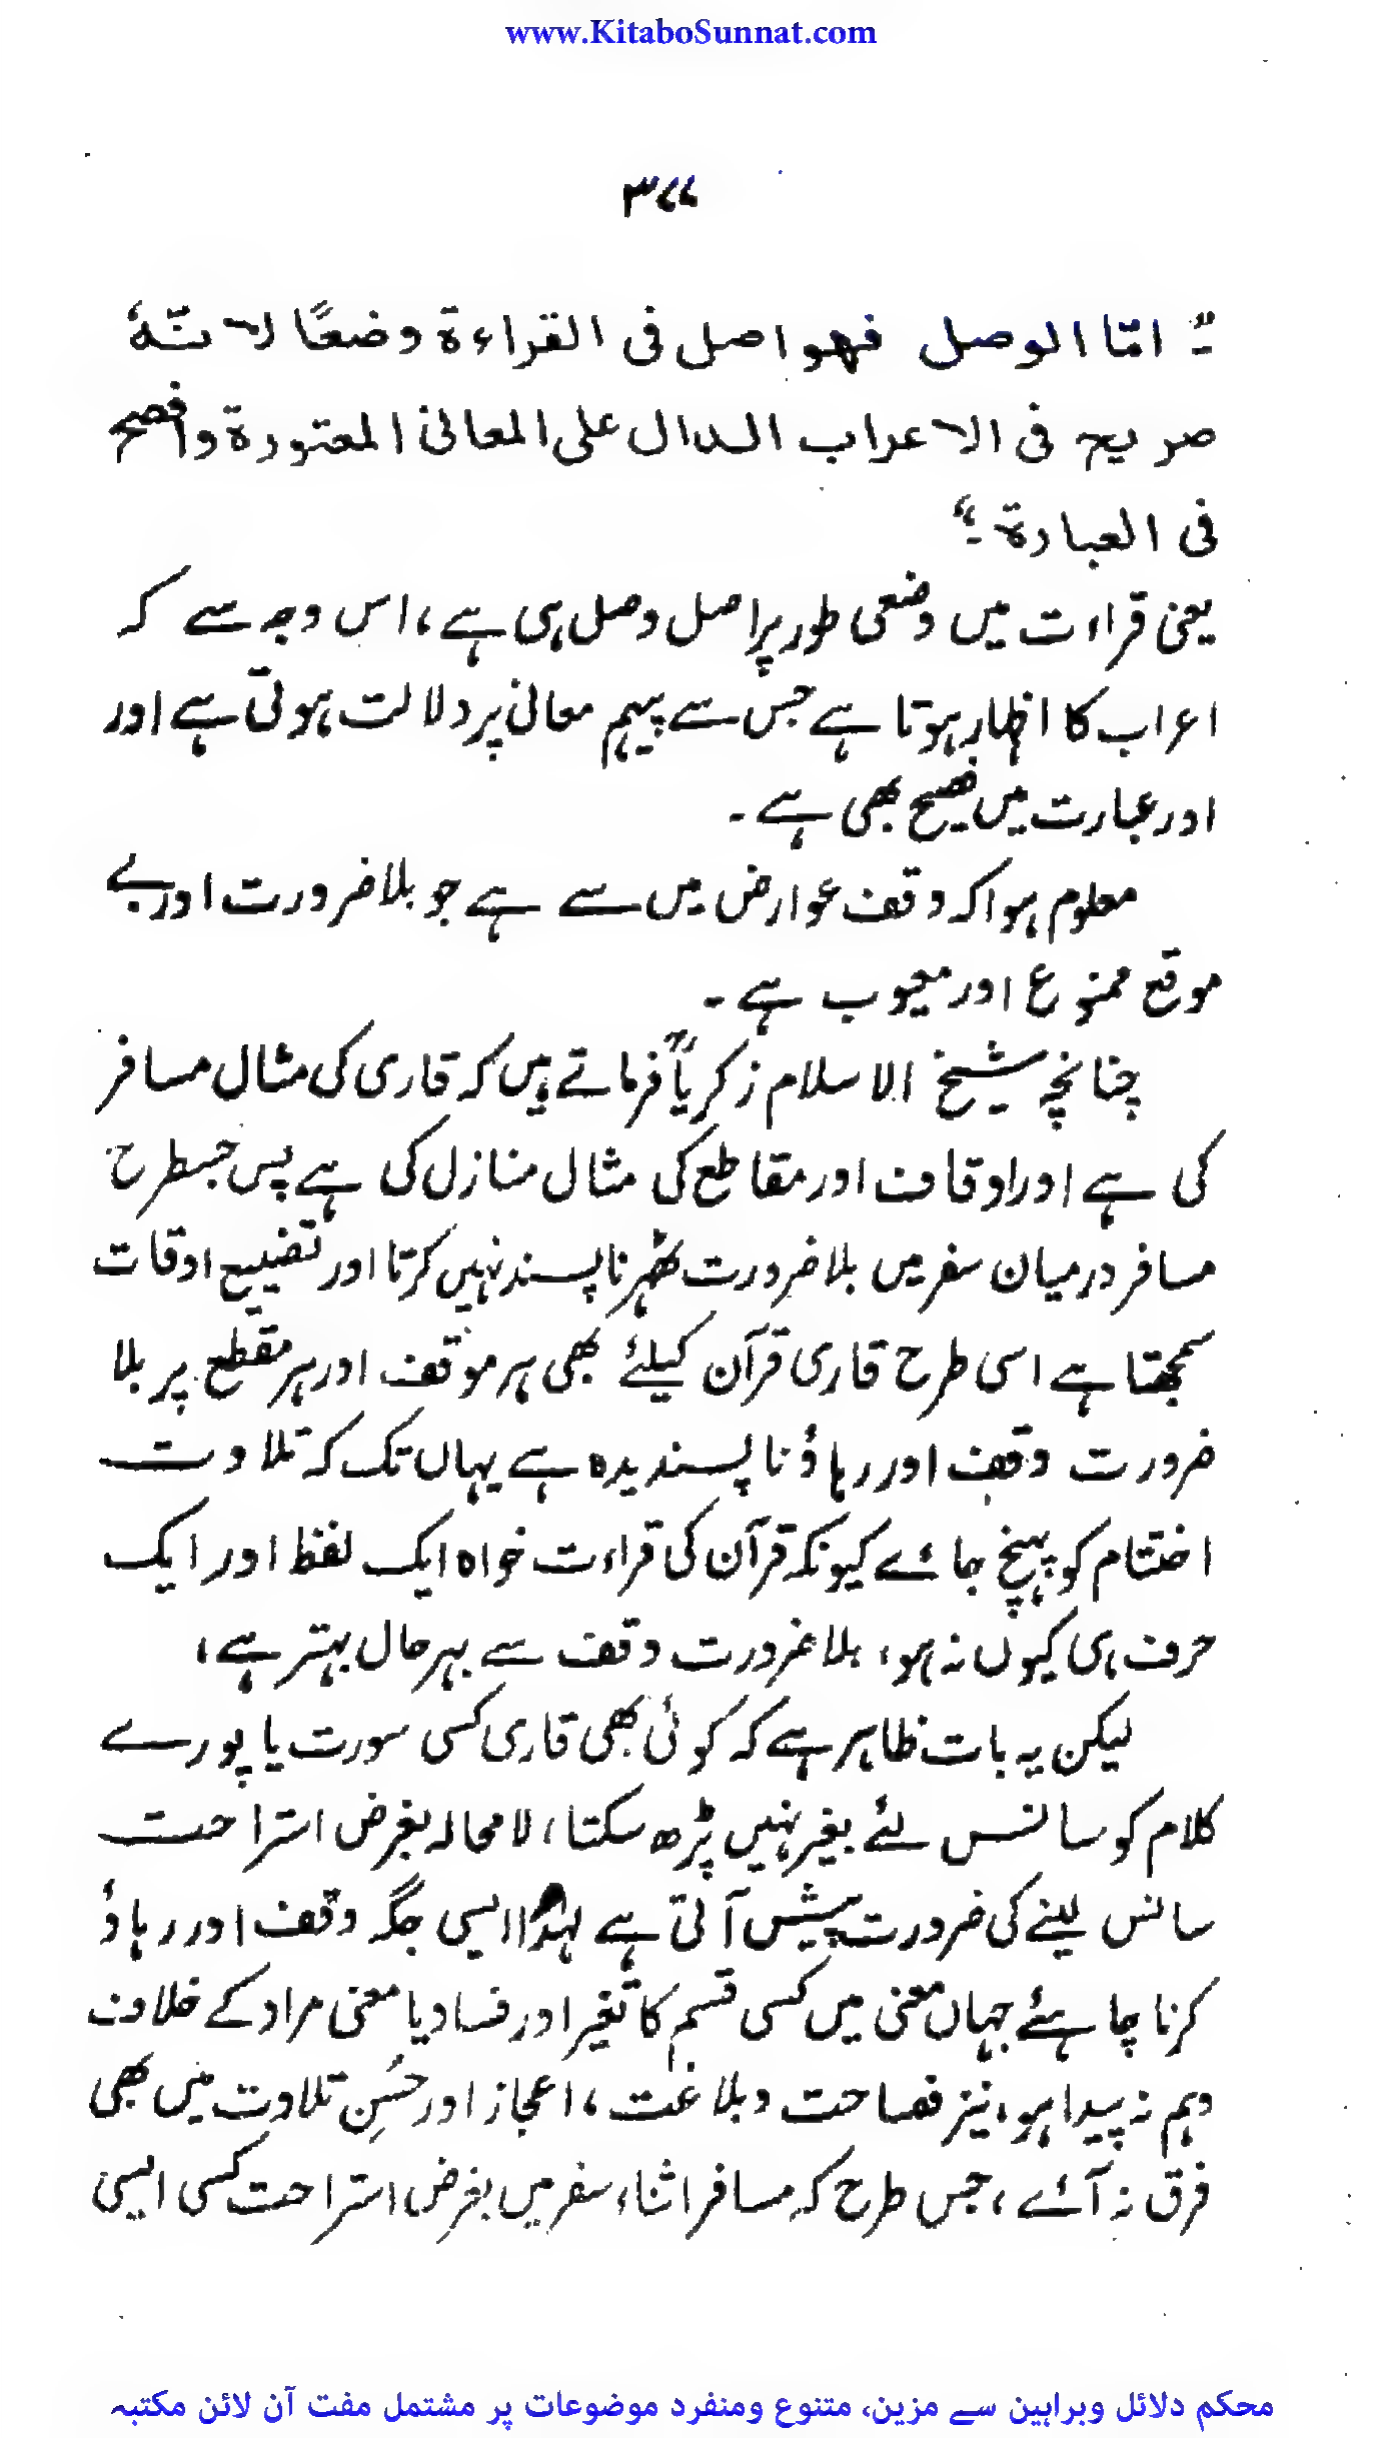 www.KitaboSunnat.com
۳۷۷
”۔ امّا الوصل فھو اصل فی القراءۃ وضعًا لانّہٗ
صریح فی الاعراب الدال علی المعانی المعتورۃ وافصح
فی العبارۃ۔“
یعنی قراءت میں وضعی طور پر اصل وصل ہی ہے، اس وجہ سے کہ
اعراب کا اظہار ہوتا ہے جس سے پیہم معانی پر دلالت ہوتی ہے اور
اور عبارت میں فصیح بھی ہے۔
معلوم ہوا کہ وقف عوارض میں سے ہے جو بلا ضرورت اور بے
موقع ممنوع اور معیوب ہے۔
چنانچہ شیخ الاسلام زکریاؒ فرماتے ہیں کہ قاری کی مثال مسافر
کی ہے اور اوقاف اور مقاطع کی مثال منازل کی ہے پس جسطرح
مسافر درمیان سفر میں بلا ضرورت ٹھہرنا پسند نہیں کرتا اور تضییع اوقات
سمجھتا ہے اسی طرح قاری قرآن کیلئے بھی ہر موقف اور ہر مقطع پر بلا
ضرورت وقف اور رہاؤ ناپسندیدہ ہے یہاں تک کہ تلاوت
اختتام کو پہنچ جائے کیونکہ قرآن کی قراءت خواہ ایک لفظ اور ایک
حرف ہی کیوں نہ ہو، بلا ضرورت وقف سے بہر حال بہتر ہے،
لیکن یہ بات ظاہر ہے کہ کوئی بھی قاری کسی سورت یا پورے
کلام کو سانس لئے بغیر نہیں پڑھ سکتا، لامحالہ بغرض استراحت
سانس لینے کی ضرورت پیش آتی ہے لہذا ایسی جگہ وقف اور رہاؤ
کرنا چاہئے جہاں معنی میں کسی قسم کا تغیر اور فساد یا معنی مراد کے خلاف
وہم نہ پیدا ہو، نیز فصاحت وبلاغت، اعجاز اور حُسنِ تلاوت میں بھی
فرق نہ آئے، جس طرح کہ مسافر اثناء سفر میں بغرض استراحت کسی ایسی
محکم دلائل وبراہین سے مزین، متنوع ومنفرد موضوعات پر مشتمل مفت آن لائن مکتبہ